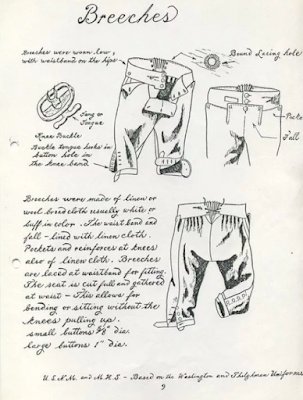 Breeches
Breeches were worn low,
with waistband on the hips
Bound Lacing hole
Tang &
Tongue
Knee Buckle
Buckle tongue hooks in
bottom hole in
the knee band
Fall
Breeches were made of linen or
wool broadcloth usually white or
buff in color. The waist band and
fall - lined with linen cloth.
Pockets and reinforces at knees
also of linen cloth. Breeches
are laced at waistband for fitting.
The seat is cut full and gathered
at waist - This allows for
bending or sitting without the
knees pulling up.
small buttons 5/8" dia.
large buttons 1" dia.
U.S.N.M. and M.H.S - Based on the Washington and Tilghman Uniforms
9